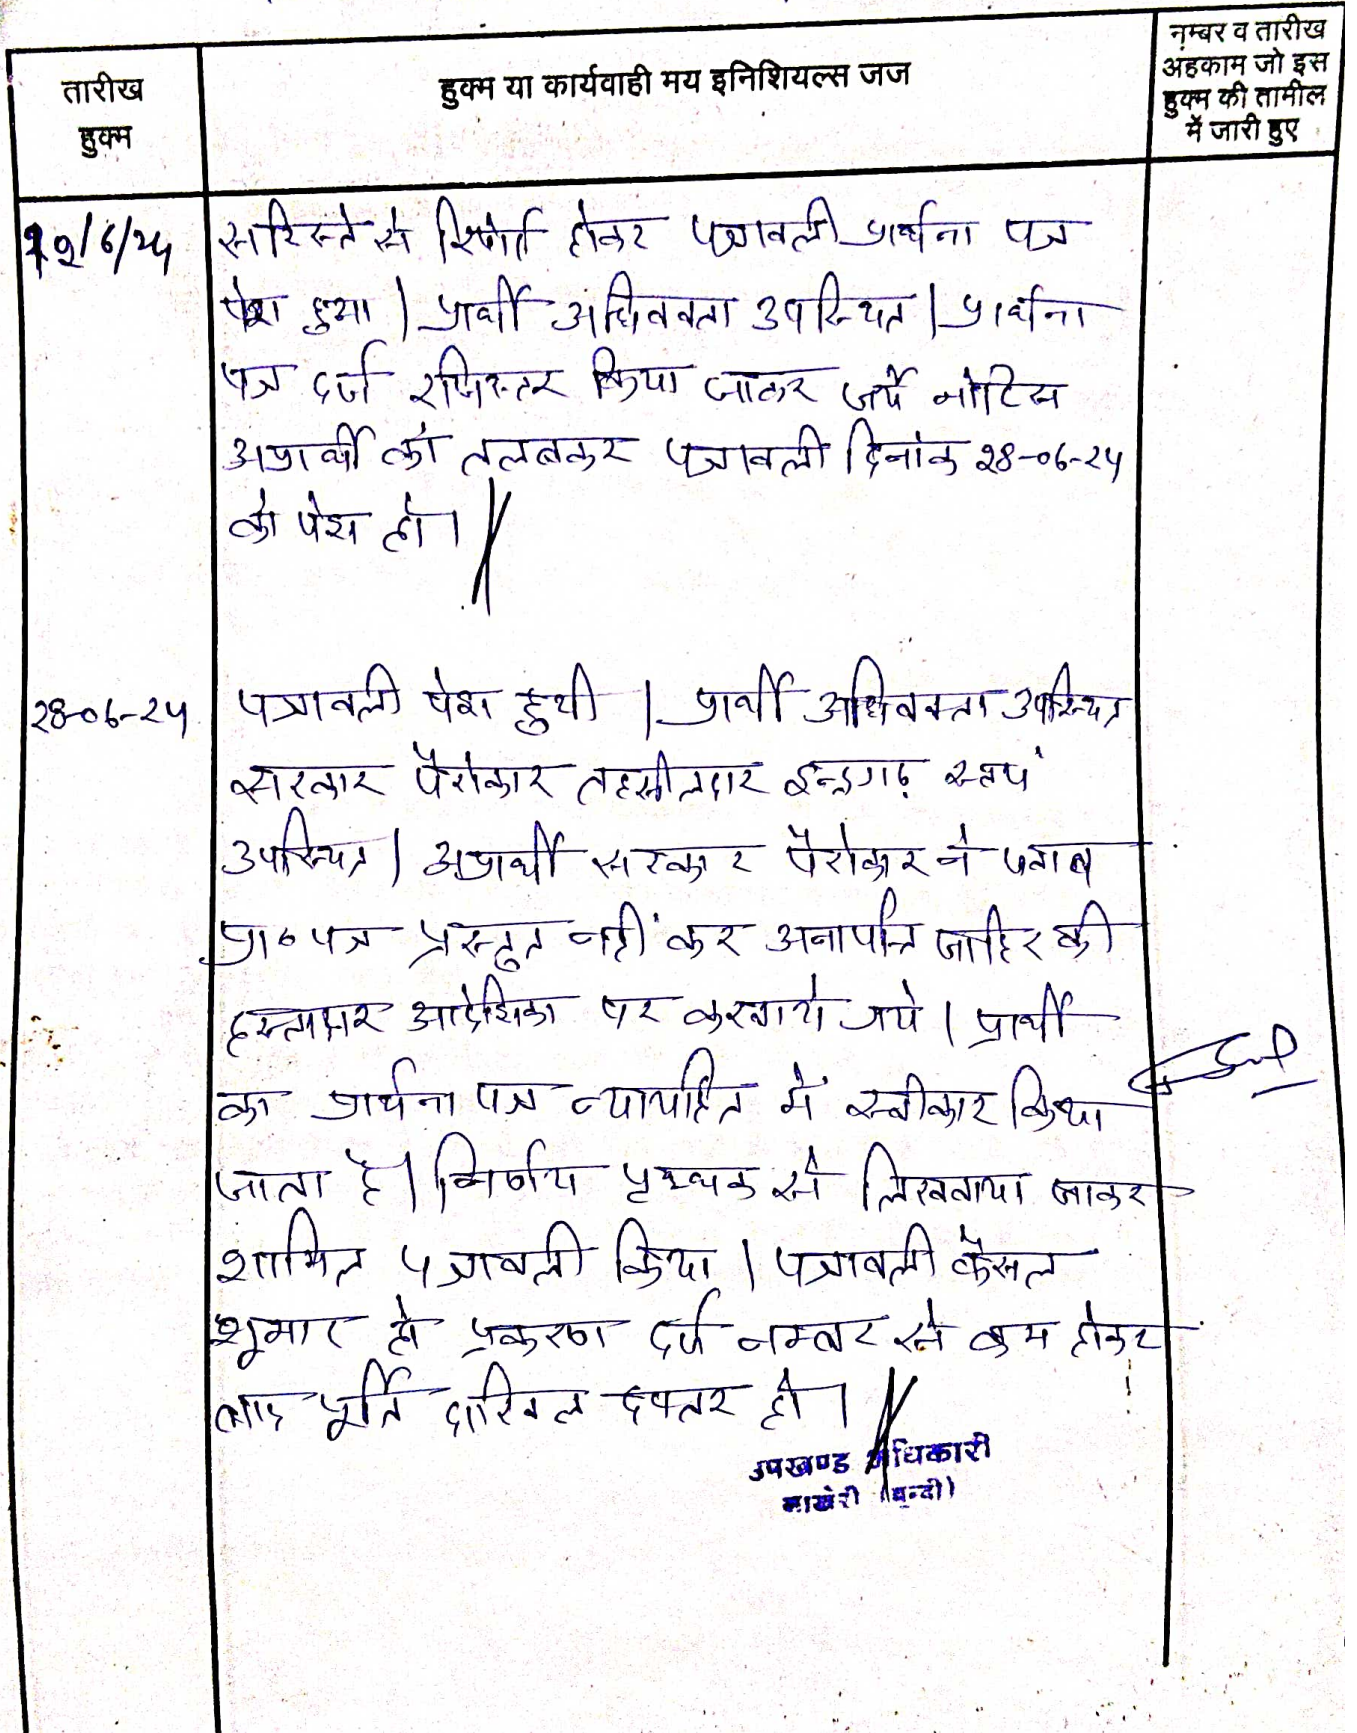 तारीख
हुक्म
हुक्म या कार्यवाही मय इनिशियल्स जज
नम्बर व तारीख
अहकाम जो इस
हुक्म की तामील
में जारी हुए
सरिस्ते से रिपोर्ट होकर पत्रावली प्रार्थना पत्र
पेश हुआ । प्रार्थी अधिवक्ता उपस्थित । प्रार्थना
पत्र दर्ज रजिस्टर किया जाकर जर्ये नोटिस
अप्रार्थी को तलबकर पत्रावली दिनांक 28-06-24
को पेश हो ।
28-06-24
पत्रावली पेश हुयी । प्रार्थी अधिवक्ता उपस्थित
सरकार पैरोकार तहसीलदार इन्द्रगढ़ स्वयं
उपस्थित । अप्रार्थी सरकार पैरोकार ने जवाब
प्रा० पत्र प्रस्तुत नहीं कर अनापत्ति जाहिर की
हस्ताक्षर आदेशिका पर करवाये गये । प्रार्थी
का प्रार्थना पत्र न्यायहित में स्वीकार किया
जाता है । निर्णय पृथ्थक से लिखवाया जाकर
शामिल पत्रावली किया । पत्रावली फैसल
शुमार हो प्रकरण दर्ज नम्बर से कम होकर
बाद पूर्ति दाखिल दफ्तर हो ।
उपखण्ड अधिकारी
लाखेरी (बून्दी)